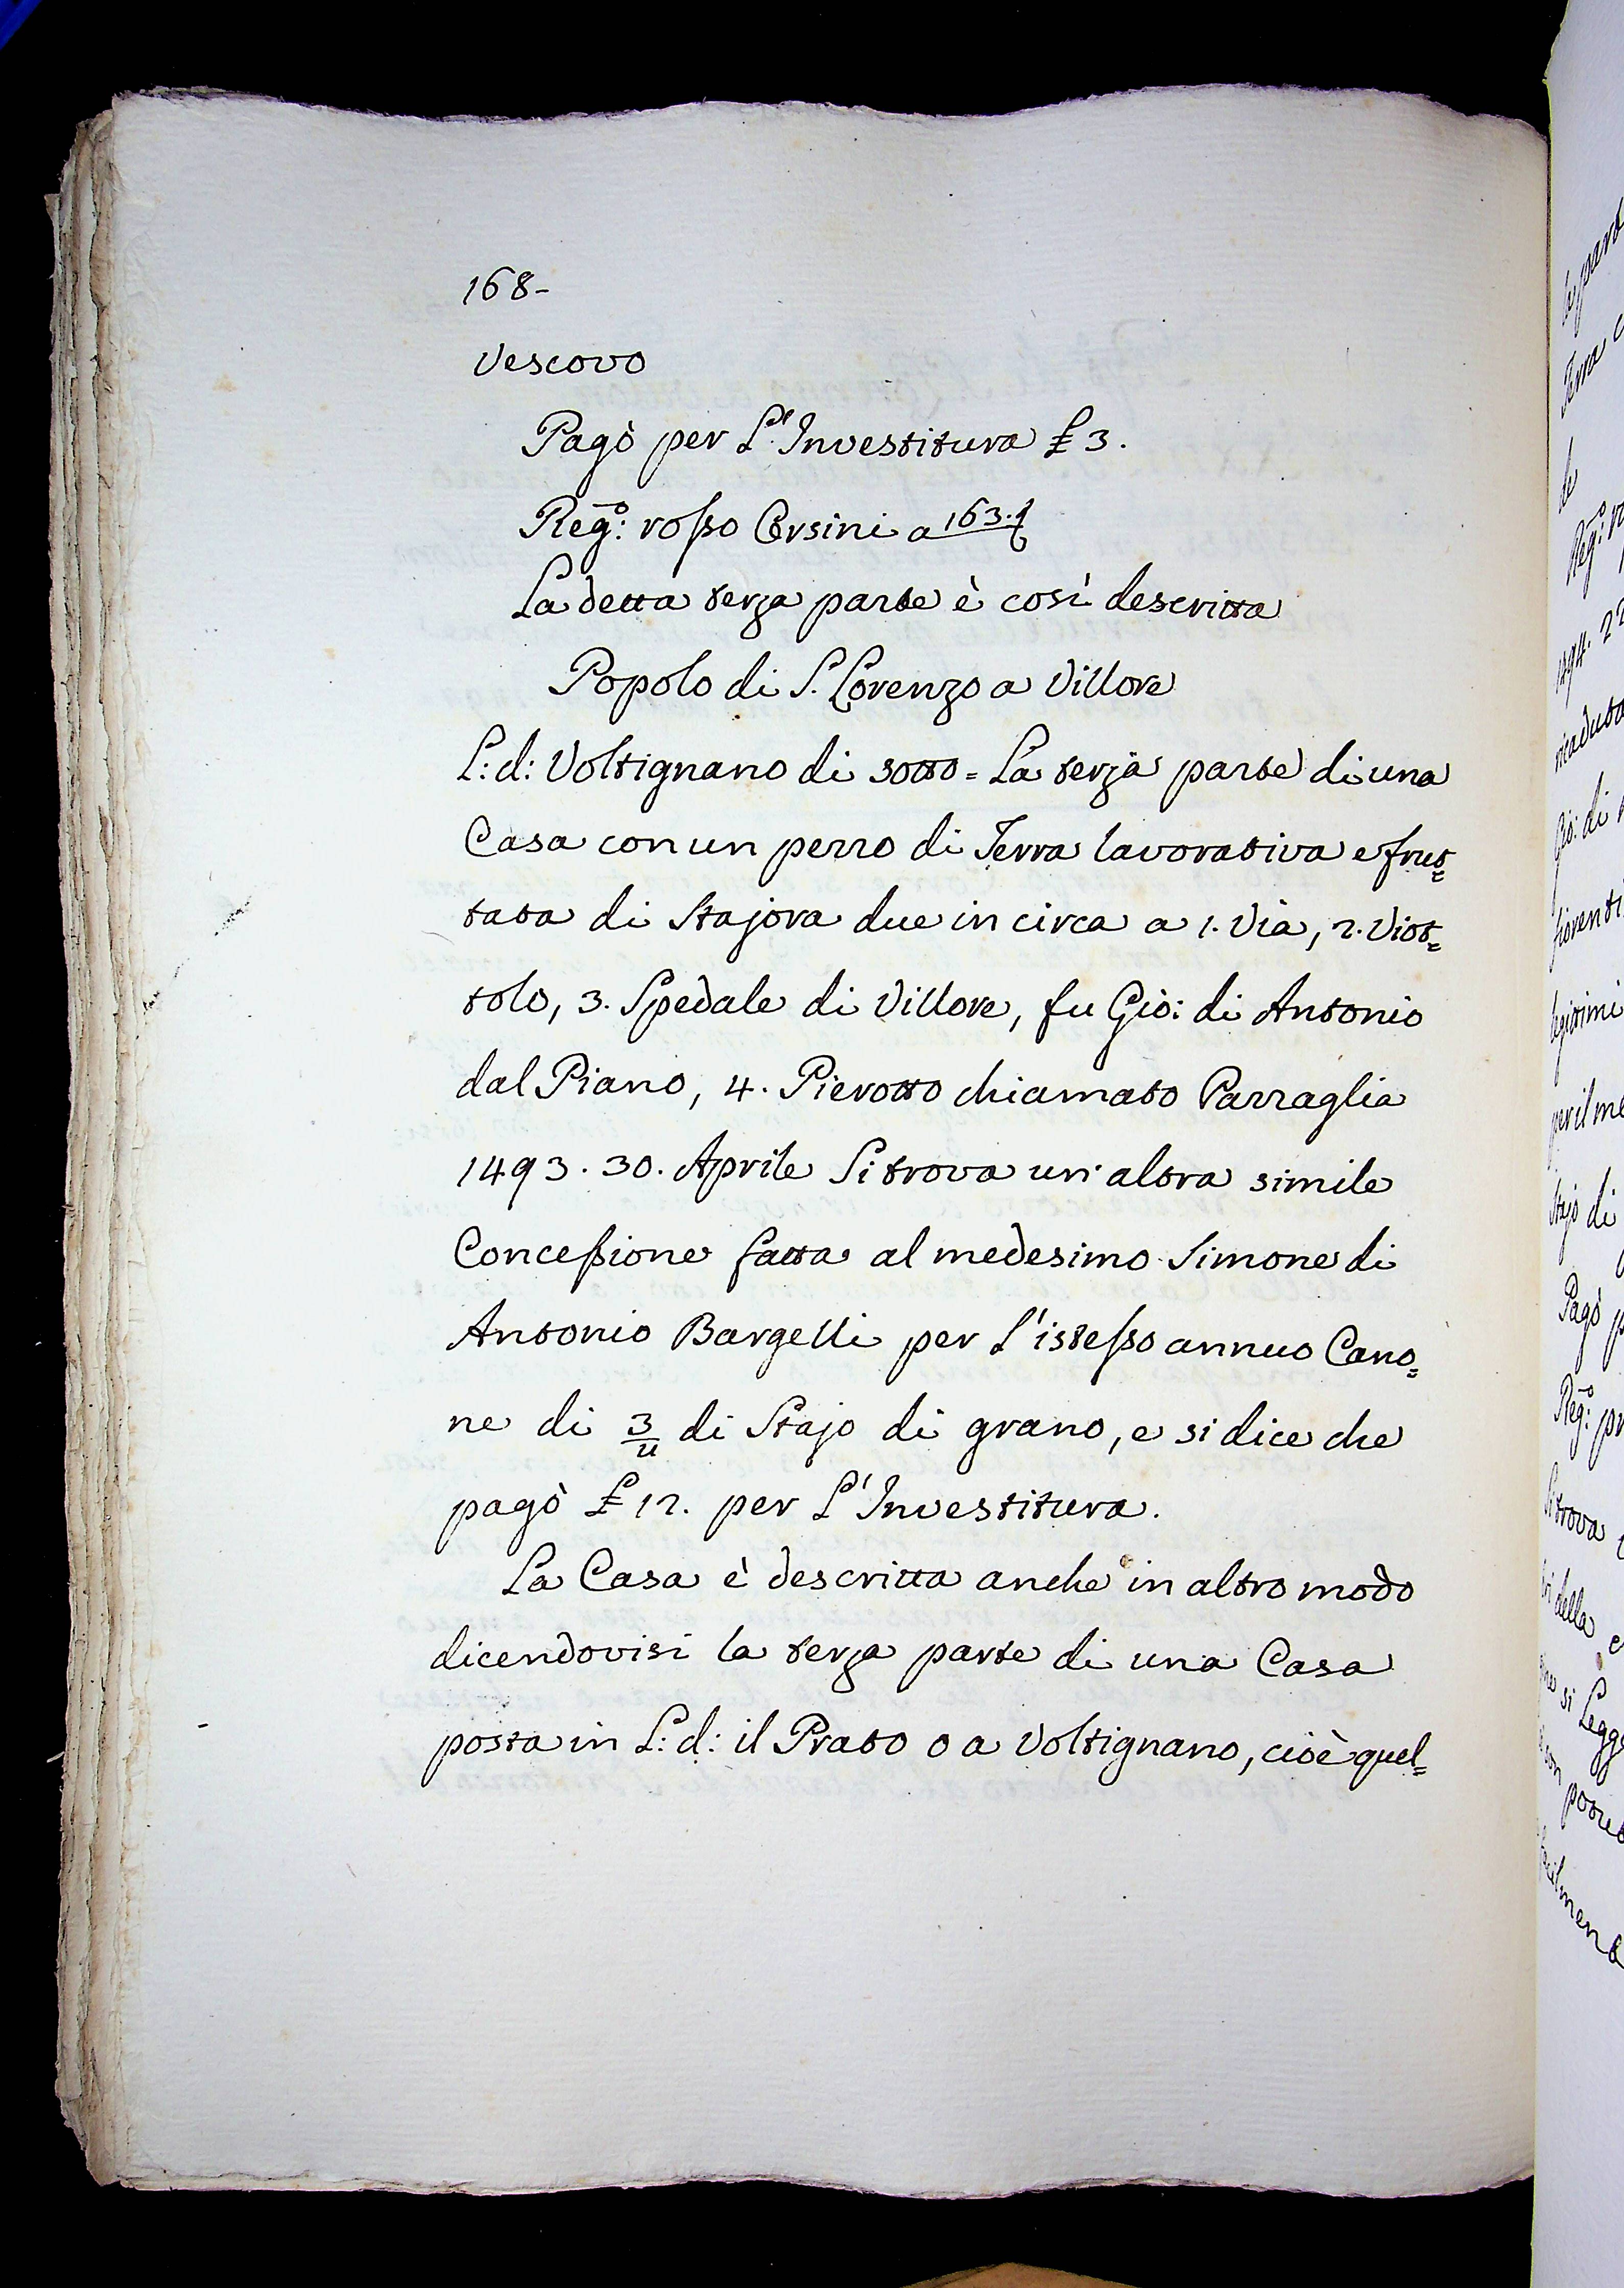 168-
Vescovo
Pagò per L'Investitura £ 3.
Reg:º rosso Corsini a 163.t
La detta terza parte è così descritta
Popolo di S. Lorenzo a Villore
L: d: Voltignano di sotto = La terza parte di una
Casa con un pezzo di Terra lavorativa e frut=
tata di Stajora due in circa a 1. Via, 2. Viot=
tolo, 3. Spedale di Villore, fu Gio: di Antonio
dal Piano, 4. Pierotto chiamato Pazzaglia
1493. 30. Aprile Si trova un'altra simile
Concessione fatta al medesimo Simone di
Antonio Bargelli per l'istesso annuo Cano=
ne di 3/4 di Stajo di grano, e si dice che
pagò £ 12. per L'Investitura.
La Casa è descritta anche in altro modo
dicendovisi la terza parte di una Casa
posta in L: d: il Prato o a Voltignano, cioè quel=